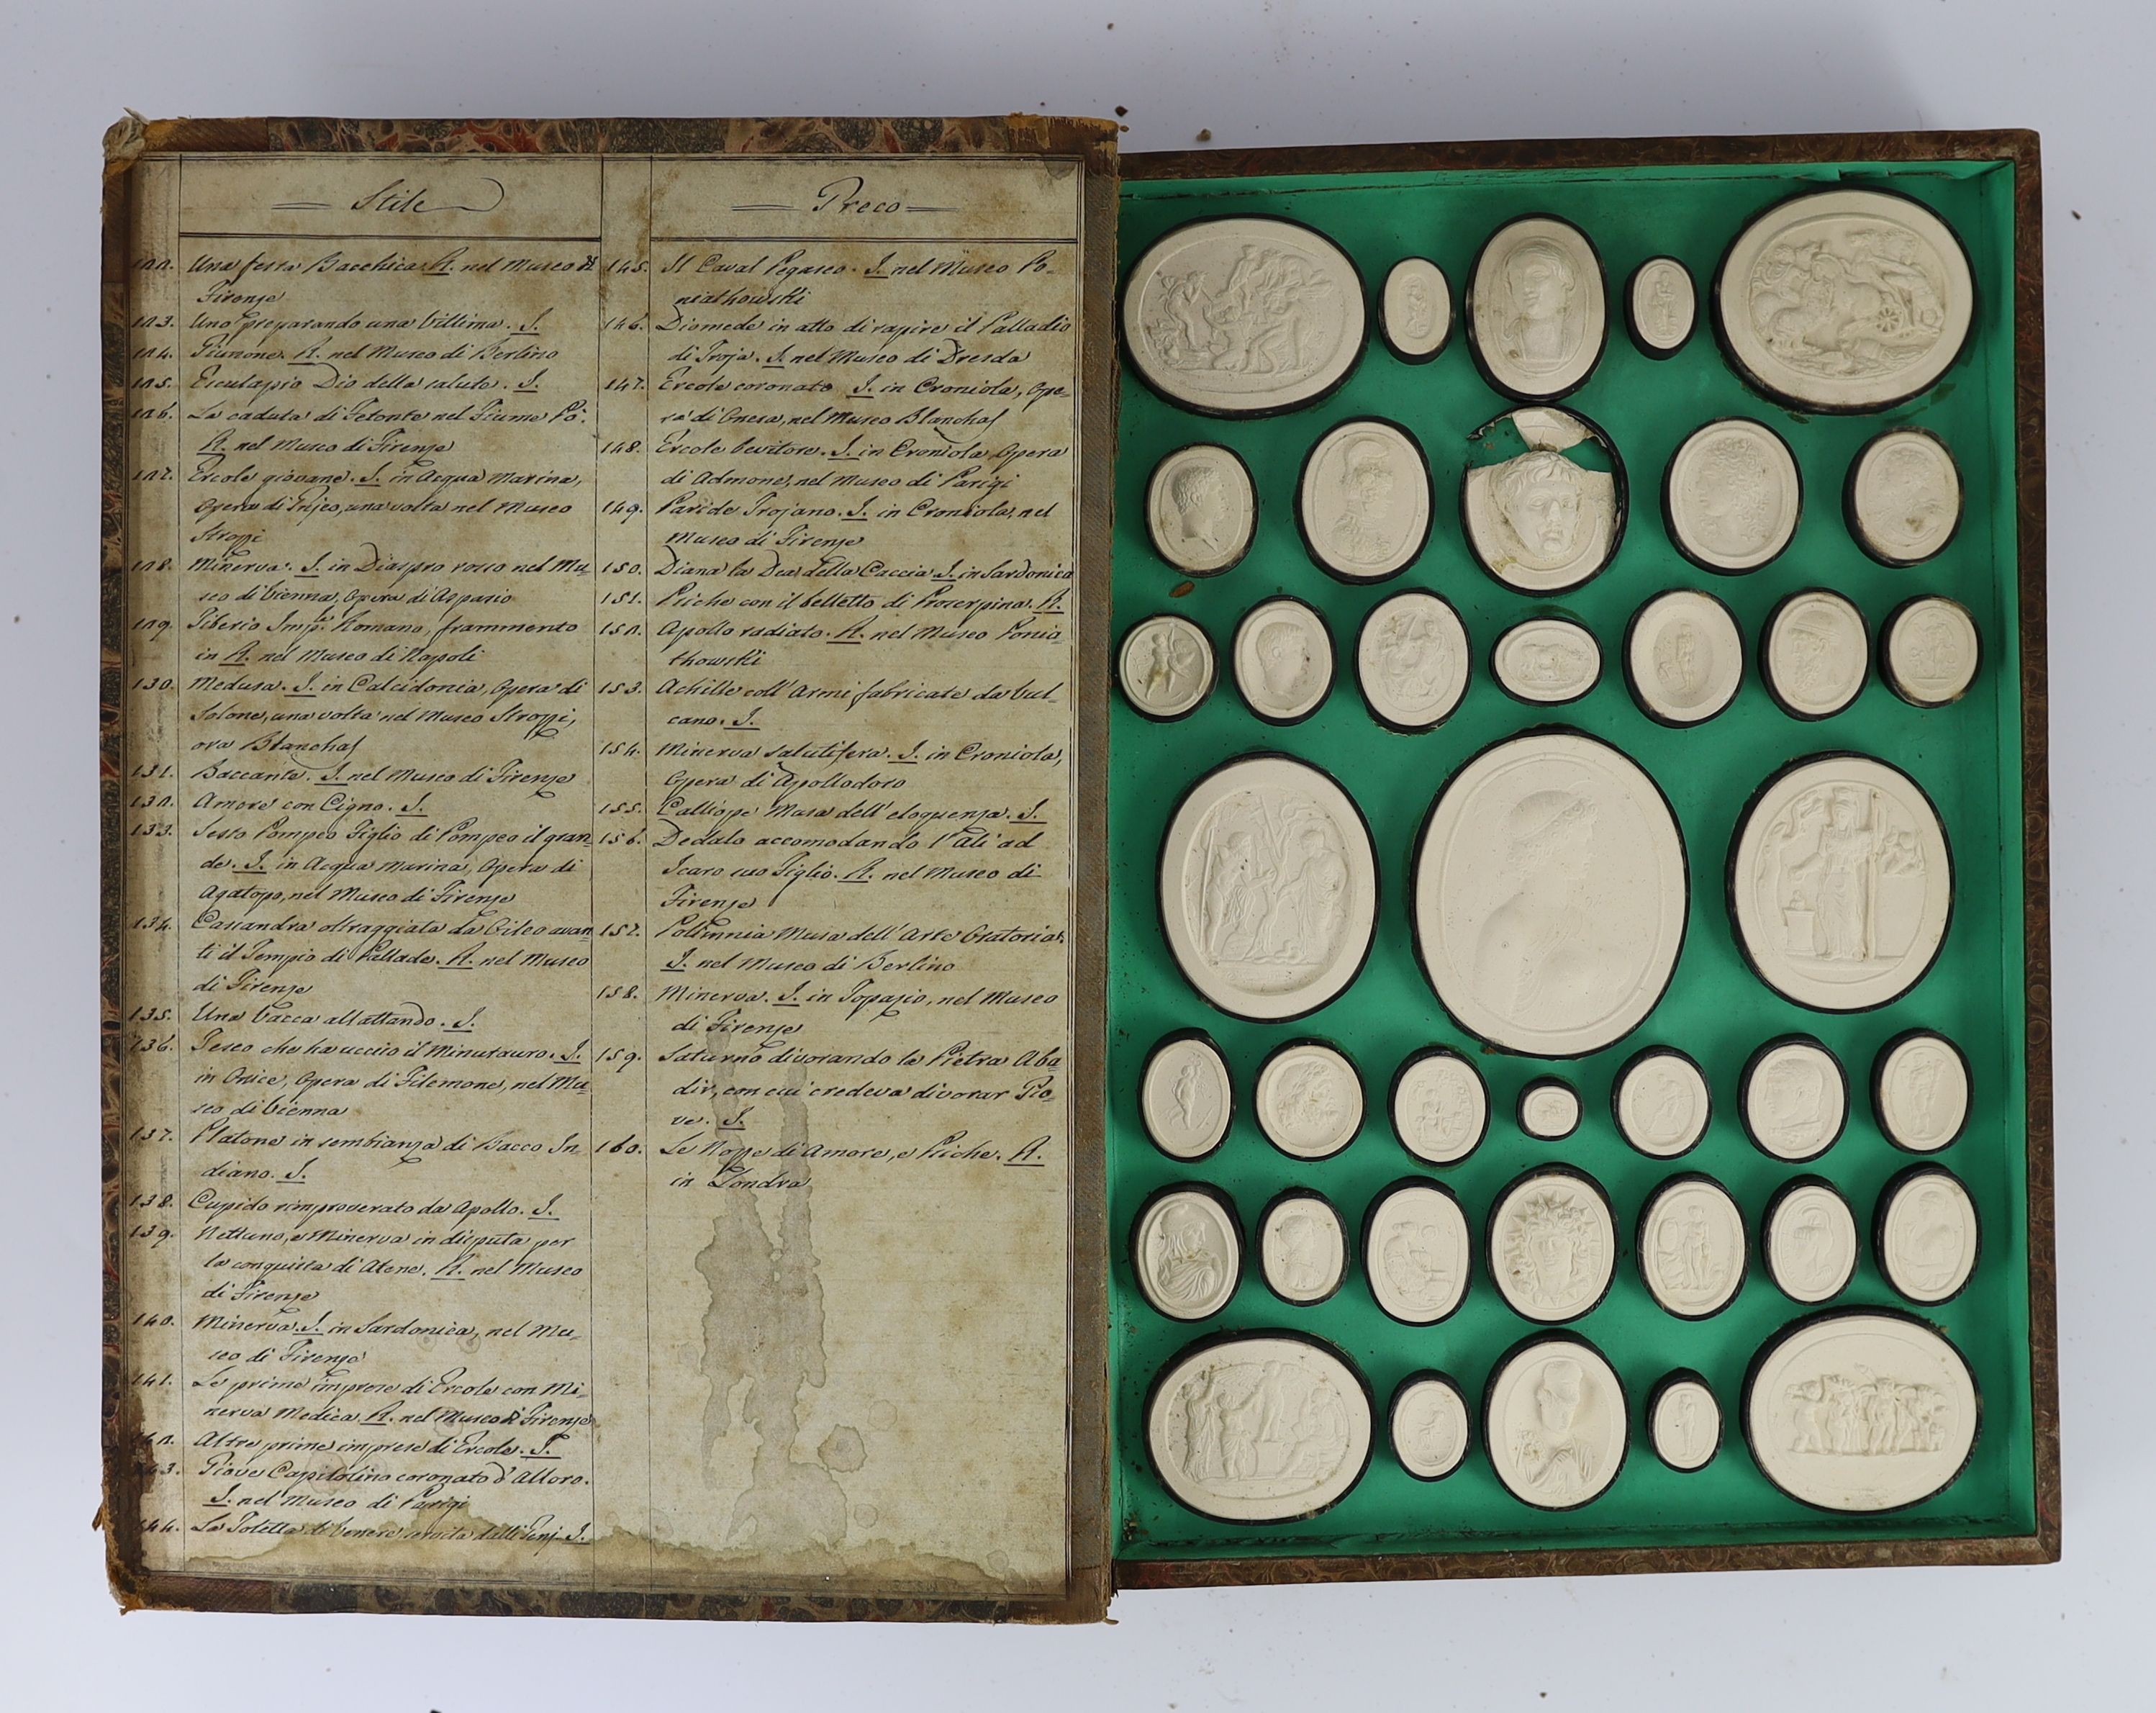 Stile
122. Una festa Bacchica. R. nel Museo di
Firenze
123. Uno preparando una Vittima. I.
124. Giunone. R. nel Museo di Berlino
125. Esculapio Dio della salute. I.
126. La caduta di Fetonte nel Fiume Pò.
R. nel Museo di Firenze
127. Ercole giovane. I. in Acqua Marina,
Opera di Gnjeo, una volta nel Museo
Strozzi
128. Minerva. I. in Diaspro rosso nel Mu=
seo di Vienna, Opera di Aspasio
129. Tiberio Imp:re Romano, frammento
in R. nel Museo di Napoli
130. Medusa. I. in Calcidonia, Opera di
Solone, una volta nel Museo Strozzi,
ora Blanchas
131. Baccante. I. nel Museo di Firenze
132. Amore con Cigno. I.
133. Sesto Pompeo Figlio di Pompeo il gran=
de. I. in Acqua Marina, Opera di
Agatopo, nel Museo di Firenze
134. Cassandra oltraggiata da Oileo avan=
ti il Tempio di Pallade. R. nel Museo
di Firenze
135. Una Vacca allattando. I.
136. Teseo che ha uccio il Minutauro. I.
in Onice, Opera di Filemone, nel Mu=
seo di Vienna
137. Platone in sembianza di Bacco In=
diano. I.
138. Cupido rimproverato da Apollo. I.
139. Nettuno, e Minerva in disputa per
la conquista di Atene. R. nel Museo
di Firenze
140. Minerva. I. in Sardonica, nel Mu=
seo di Firenze
141. Le prime imprese di Ercole con Mi=
nerva Medica. R. nel Museo di Firenze
142. Altre prime imprese di Ercole. I.
143. Giove Capitolino coronato d'Alloro.
I. nel Museo di Parigi
144. La Toletta di Venere servita dalli Genj. I.
Greco
145. Il Caval Pegaseo. I. nel Museo Po=
niathowski
146. Diomede in atto di rapire il Palladio
di Troja. I. nel Museo di Dresda
147. Ercole coronato I. in Croniola, Ope=
ra di Onesa, nel Museo Blanchas
148. Ercole bevitore. I. in Croniola Opera
di Admone, nel Museo di Parigi
149. Paride Trojano. I. in Croniola, nel
Museo di Firenze
150. Diana la Dea della Caccia I. in Sardonica
151. Psiche con il belletto di Proserpina. R.
152. Apollo radiato. R. nel Museo Ponia=
thowski
153. Achille coll'Armi fabricate da Vul=
cano. I.
154. Minerva salutifera. I. in Croniola,
Opera di Apollodoro
155. Calliope Musa dell'eloquenza. I.
156. Dedalo accomodando l'Ali ad
Icaro suo Figlio. R. nel Museo di
Firenze
157. Polinnia Musa dell'Arte Oratoria.
I. nel Museo di Berlino
158. Minerva. I. in Topazio, nel Museo
di Firenze
159. Saturno divorando la Pietra Aba=
dir, con cui credeva divorar Gio=
ve. I.
160. Le Nozze di Amore, e Psiche. R.
in Londra